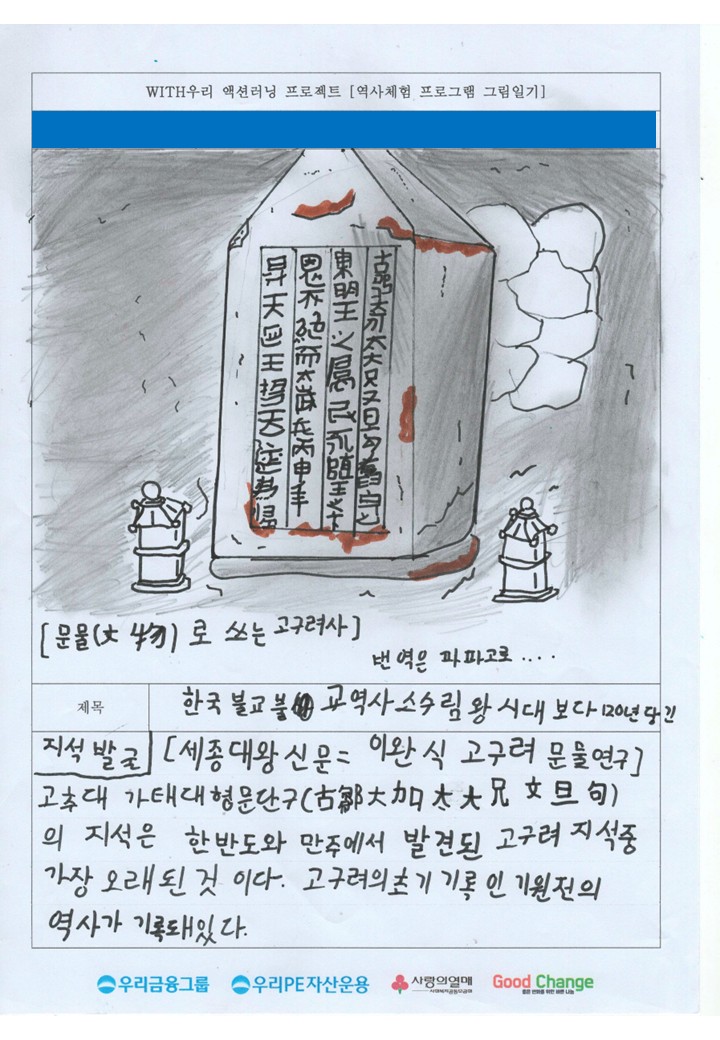 WITH우리 액션러닝 프로젝트 [역사체험 프로그램 그림일기]
古鄒加太大兄文旦句舊民也
東明王之屬 民 隨王
恩 絶而 歲在丙申年
昇天 王 天
[문물(文物)로 쓰는 고구려사]
번역은 파파고로 ....
제목
한국 불교 교역사 소수림왕 시대 보다 120년 당긴
지석 발굴 [세종대왕신문= 이완식 고구려 문물연구]
고추대 가태대형문단구(古鄒大加太大兄 文旦句)
의 지석은 한반도와 만주에서 발견된 고구려 지석중
가장 오래된 것 이다. 고구려의 초기 기록인 기원전의
역사가 기록돼있다.
우리금융그룹 우리PE자산운용 사랑의열매 Good Change